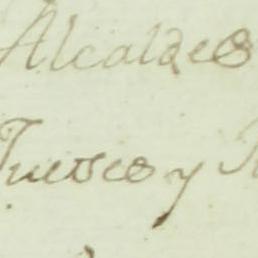 Alcaldes
Jueses y